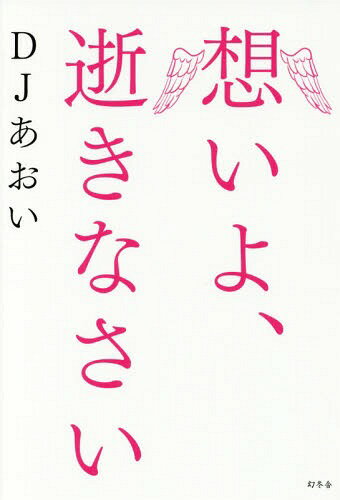 想いよ、
逝きなさい
DJあおい
幻冬舎